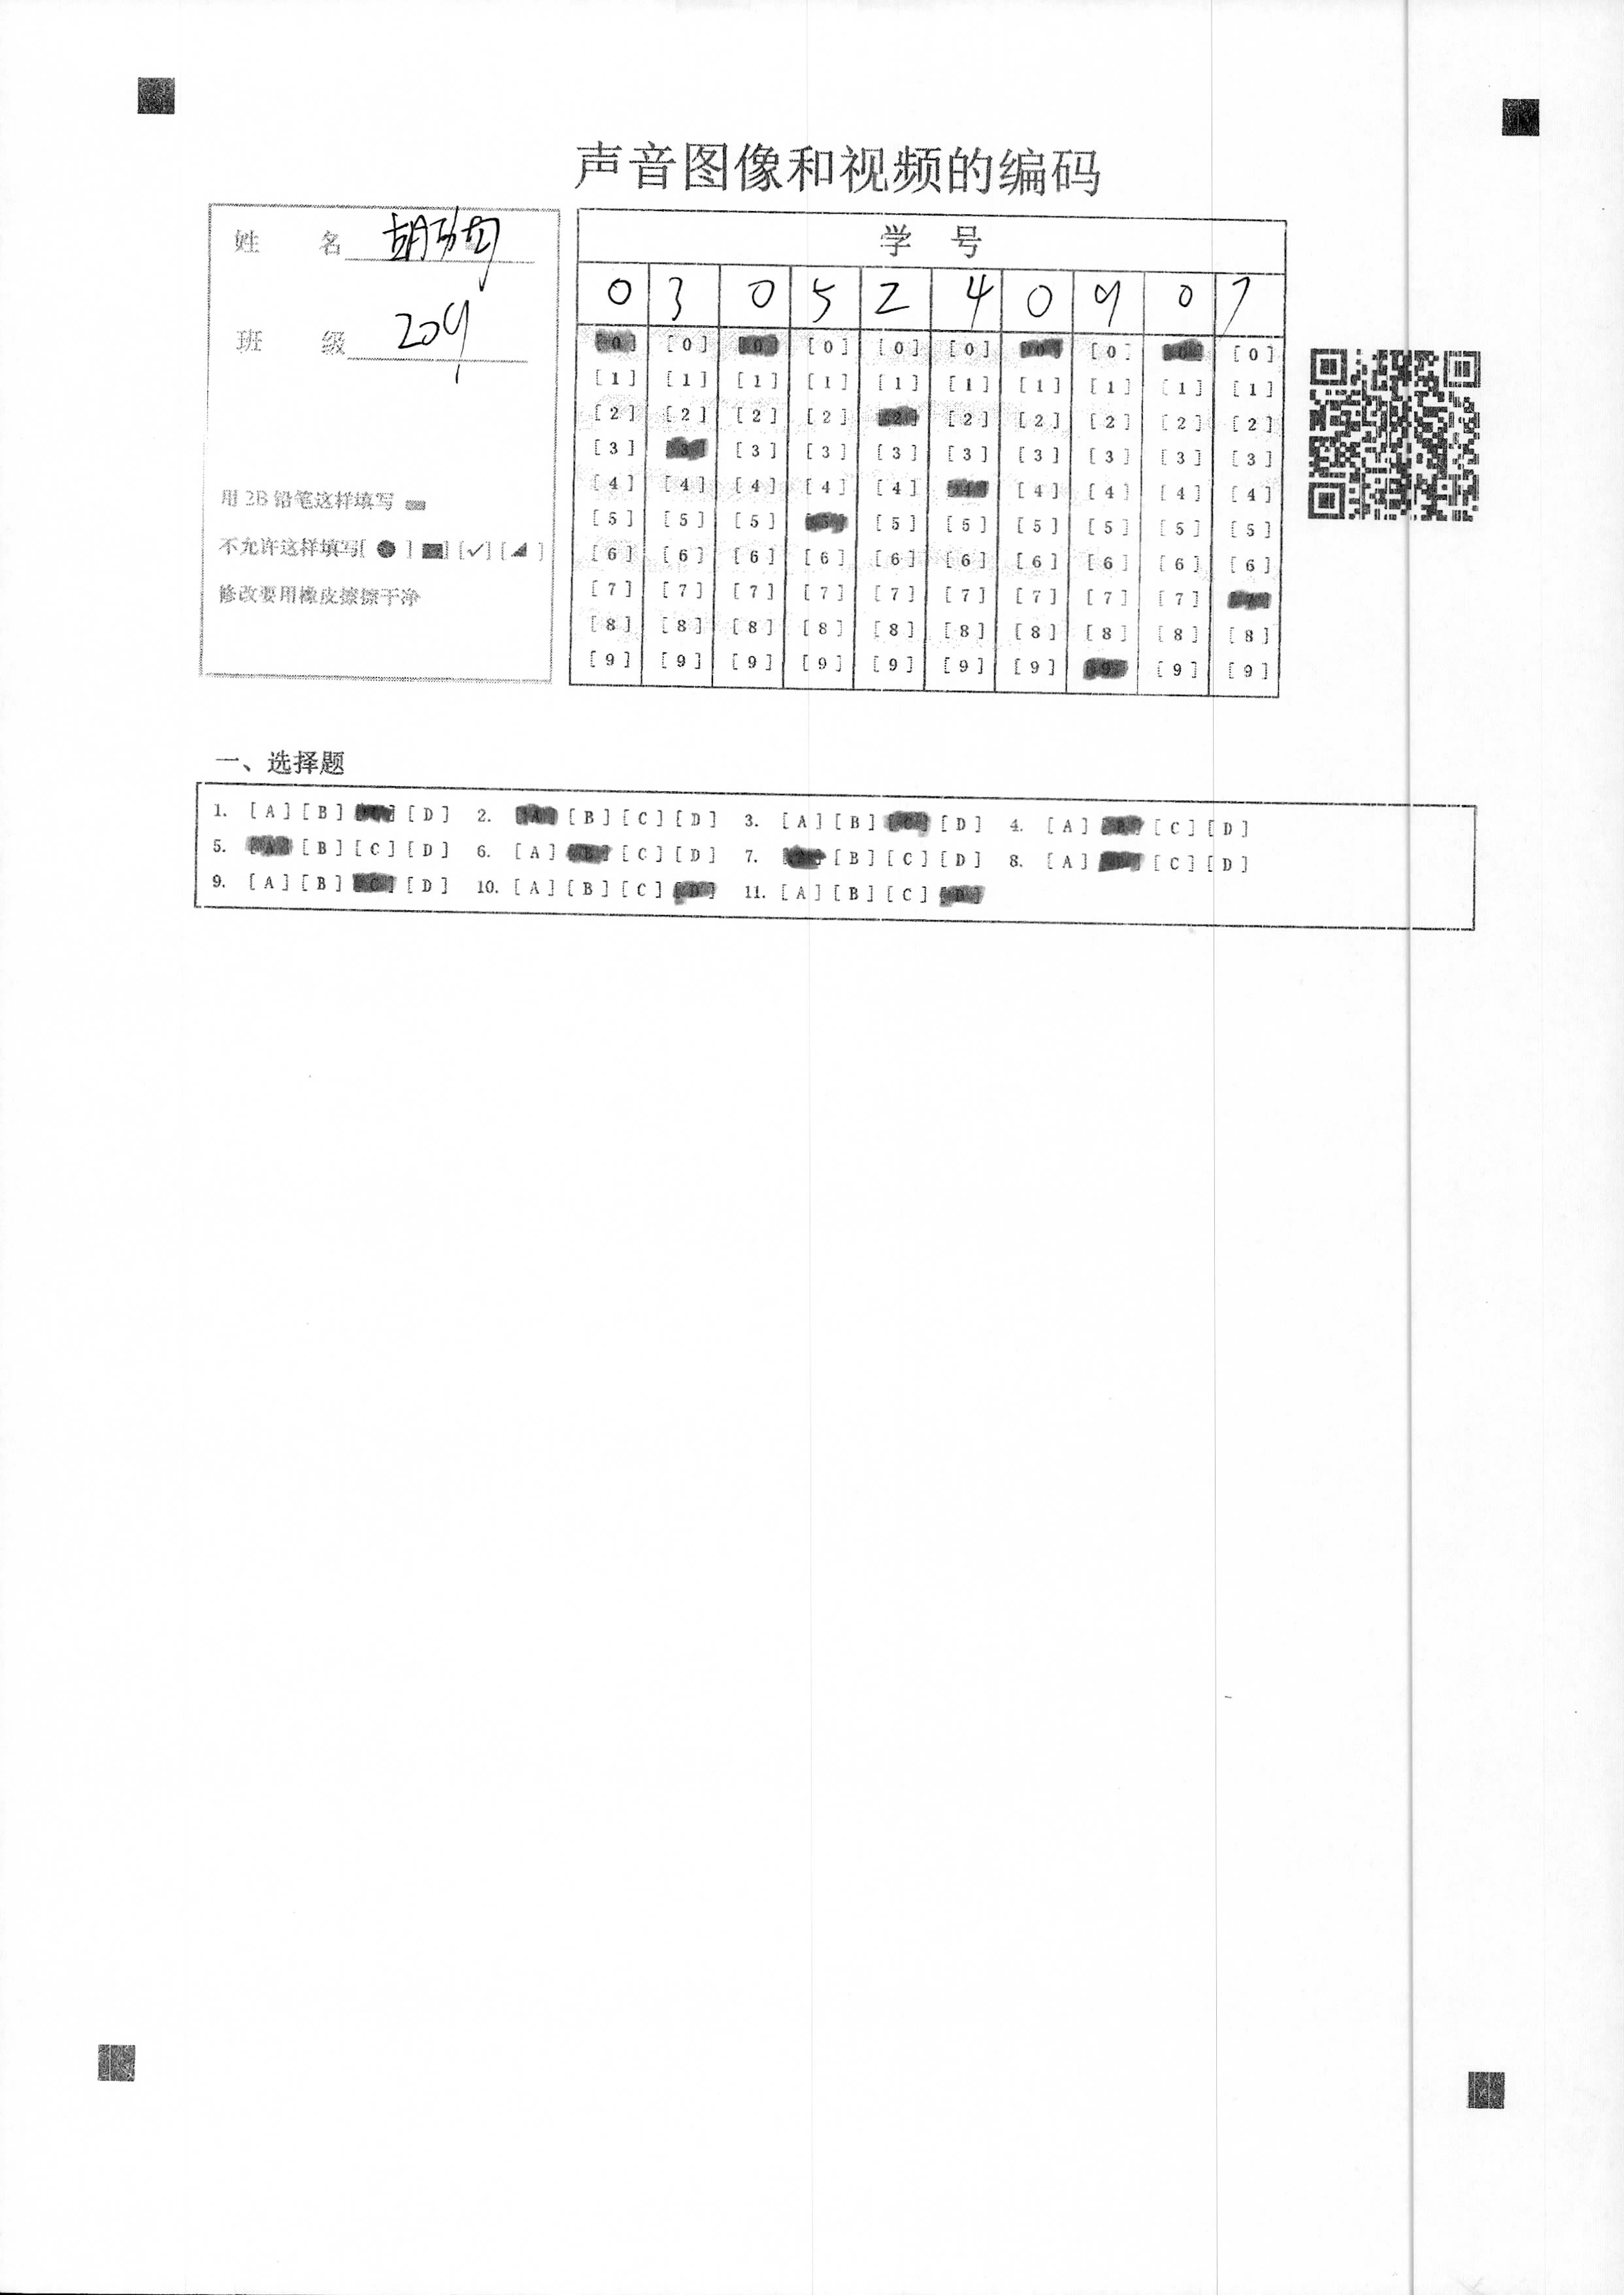 声音图像和视频的编码
姓 名 胡
班 级 209
用 2B 铅笔这样填写
不允许这样填写[ ● ] ■] [✓] [◢ ]
修改要用橡皮擦擦干净
学 号
0 3 0 5 2 4 0 9 0 7
[0] [0] [0] [0] [0] [0] [0] [0] [0] [0]
[1] [1] [1] [1] [1] [1] [1] [1] [1] [1]
[2] [2] [2] [2] [2] [2] [2] [2] [2] [2]
[3] [3] [3] [3] [3] [3] [3] [3] [3] [3]
[4] [4] [4] [4] [4] [4] [4] [4] [4] [4]
[5] [5] [5] [5] [5] [5] [5] [5] [5] [5]
[6] [6] [6] [6] [6] [6] [6] [6] [6] [6]
[7] [7] [7] [7] [7] [7] [7] [7] [7] [7]
[8] [8] [8] [8] [8] [8] [8] [8] [8] [8]
[9] [9] [9] [9] [9] [9] [9] [9] [9] [9]
一、选择题
1. [A] [B] [C] [D] 2. [A] [B] [C] [D] 3. [A] [B] [C] [D] 4. [A] [B] [C] [D]
5. [A] [B] [C] [D] 6. [A] [B] [C] [D] 7. [A] [B] [C] [D] 8. [A] [B] [C] [D]
9. [A] [B] [C] [D] 10. [A] [B] [C] [D] 11. [A] [B] [C] [D]